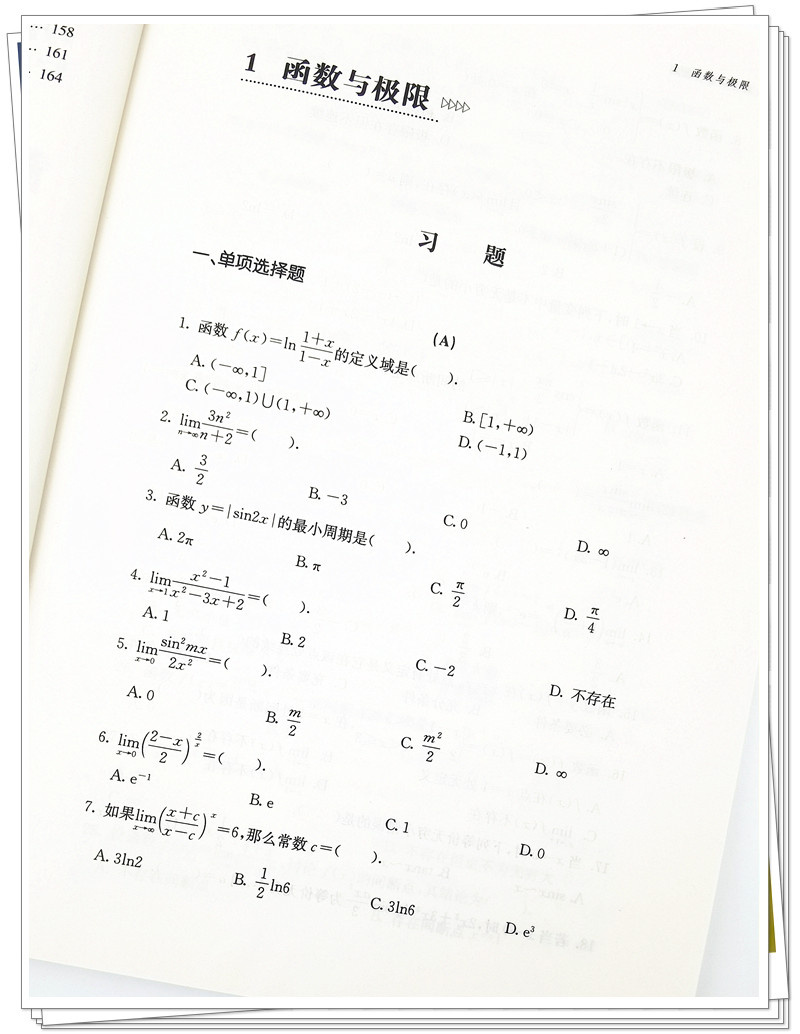 … 158
… 161
· 164
1 函数与极限
1 函数与极限
习 题
一、单项选择题
(A)
1. 函数 f(x)=ln (1+x)/(1−x) 的定义域是( ).
A. (−∞,1]
B. [1,+∞)
C. (−∞,1)∪(1,+∞)
D. (−1,1)
2. lim n→∞ 3n²/(n+2)=( ).
A. 3/2
B. −3
C. 0
D. ∞
3. 函数 y=|sin2x|的最小周期是( ).
A. 2π
B. π
C. π/2
D. π/4
4. lim x→1 (x²−1)/(x²−3x+2)=( ).
A. 1
B. 2
C. −2
D. 不存在
5. lim x→0 sin²mx/2x²=( ).
A. 0
B. m/2
C. m²/2
D. ∞
6. lim x→0 ((2−x)/2)^(2/x)=( ).
A. e⁻¹
B. e
C. 1
D. 0
7. 如果lim x→∞ ((x+c)/(x−c))^x=6,那么常数 c=( ).
A. 3ln2
B. 1/2 ln6
C. 3ln6
D. e³